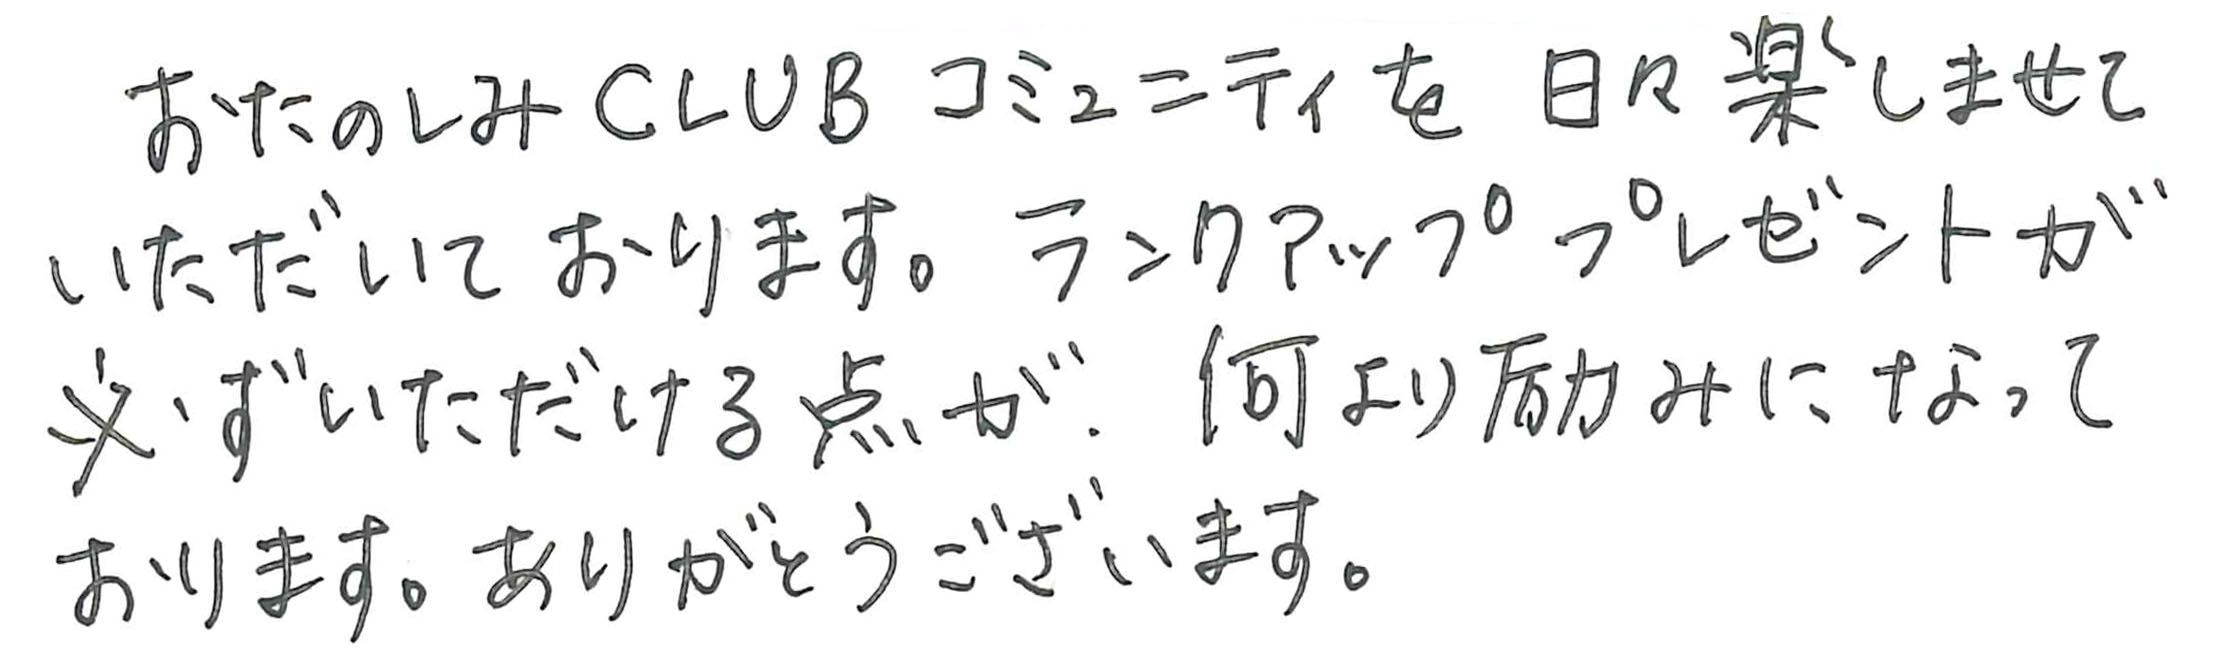 おたのしみCLUB コミュニティを 日々楽しませて
いただいて おります。 ランクアップ プレゼントが
必ずいただける点が、何より励みになって
おります。ありがとうございます。